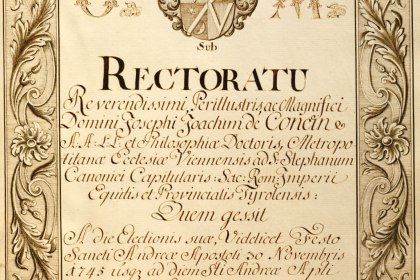 Sub
RECTORATU
Reverendissimi, Perillustris, ac Magnifici
Domini Josephi Joachim de Concin &
A. A. L L. et Philosophiæ Doctoris, Metropo
litanæ Ecclesiæ Viennensis ad S. Stephanum
Canonici Capitularis: Sac: Rom: Imperii
Equitis et Provincialis Tyrolensis:
Quem gessit
A die Electionis suæ, Videlicet Festo
Sancti Andreæ Apostoli 30 Novembris
1745 usq3 ad diem Sti Andreæ Apli